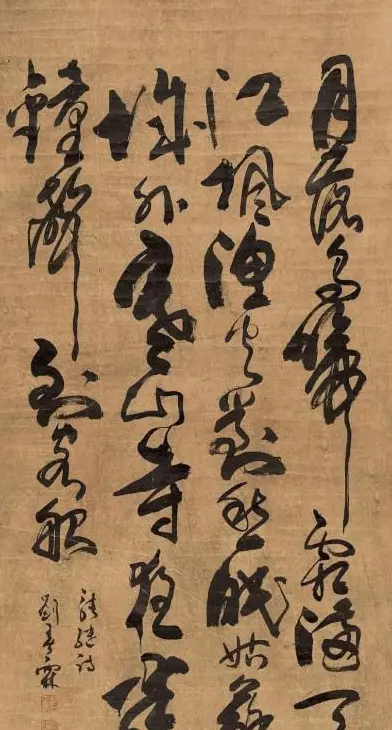 月落烏啼霜滿天
江楓漁火對愁眠姑蘇
城外寒山寺夜半
鐘聲到客船
張繼詩
劉春霖